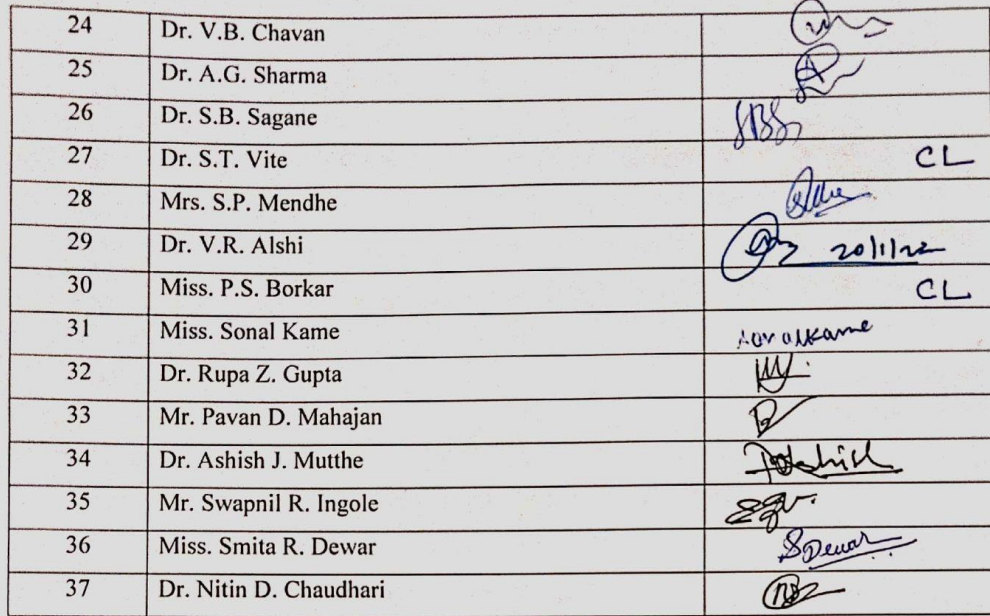 24 Dr. V.B. Chavan
25 Dr. A.G. Sharma
26 Dr. S.B. Sagane
27 Dr. S.T. Vite CL
28 Mrs. S.P. Mendhe
29 Dr. V.R. Alshi 20/1/22
30 Miss. P.S. Borkar CL
31 Miss. Sonal Kame sonalkame
32 Dr. Rupa Z. Gupta
33 Mr. Pavan D. Mahajan
34 Dr. Ashish J. Mutthe
35 Mr. Swapnil R. Ingole
36 Miss. Smita R. Dewar SDewar
37 Dr. Nitin D. Chaudhari